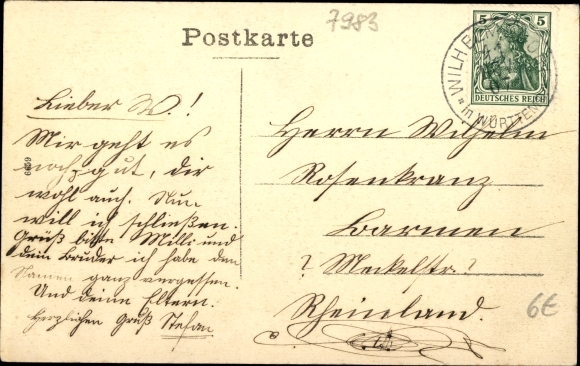 7983
Postkarte
5 5
DEUTSCHES REICH
WILHE
in WÜRTTEM
Lieber W.!
Mir geht es
noch gut, dir
wohl auch. Nun
will ich schließen.
Grüß bitte Milli und
dein Bruder ich habe den
Namen ganz vergessen.
Und deine Eltern.
Herzlichen Gruß Stefan
6659
Herrn Wilhelm
Rosenkranz
Barmen
? Meckelstr. ?
Rheinland.
6€